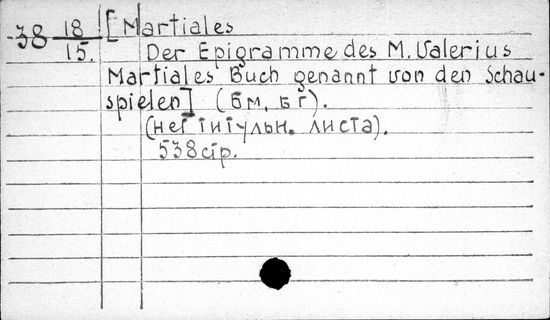 -38 18/15. [Martiales
Der Epigramme des M. Valerius
Martiales Buch genannt von den Schau-
spielen] (бм, бг).
(нет титульн. листа).
538 стр.